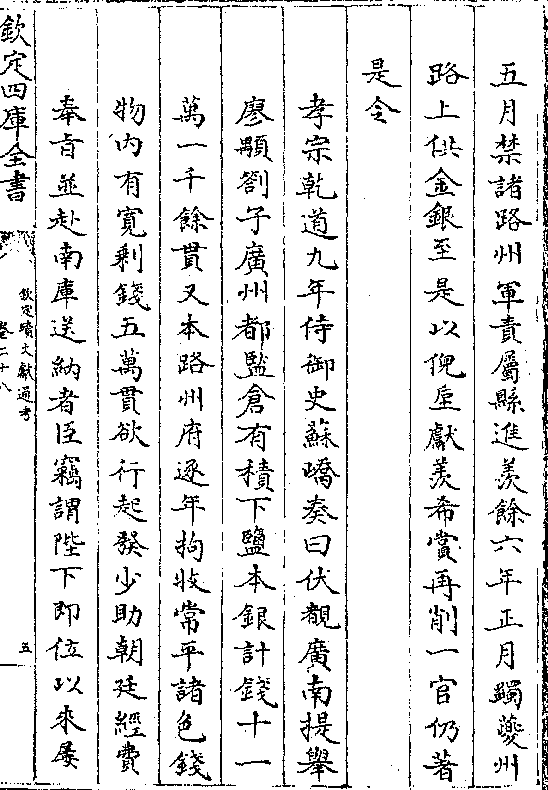 五月禁諸路州軍責屬縣進羨餘六年正月蠲夔州
路上供金銀至是以倪垕獻羨希賞再削一官仍著
是令
孝宗乾道九年侍御史蘇嶠奏曰伏覩廣南提舉
廖顒劄子廣州都監倉有積下鹽本銀計錢十一
萬一千餘貫又本路州府逐年拘收常平諸色錢
物内有寛剰錢五萬貫欲行起發少助朝廷經費
奉旨並赴南庫送納者臣竊謂陛下即位以來屡
欽定四庫全書
欽定續文獻通考
卷二十八
五